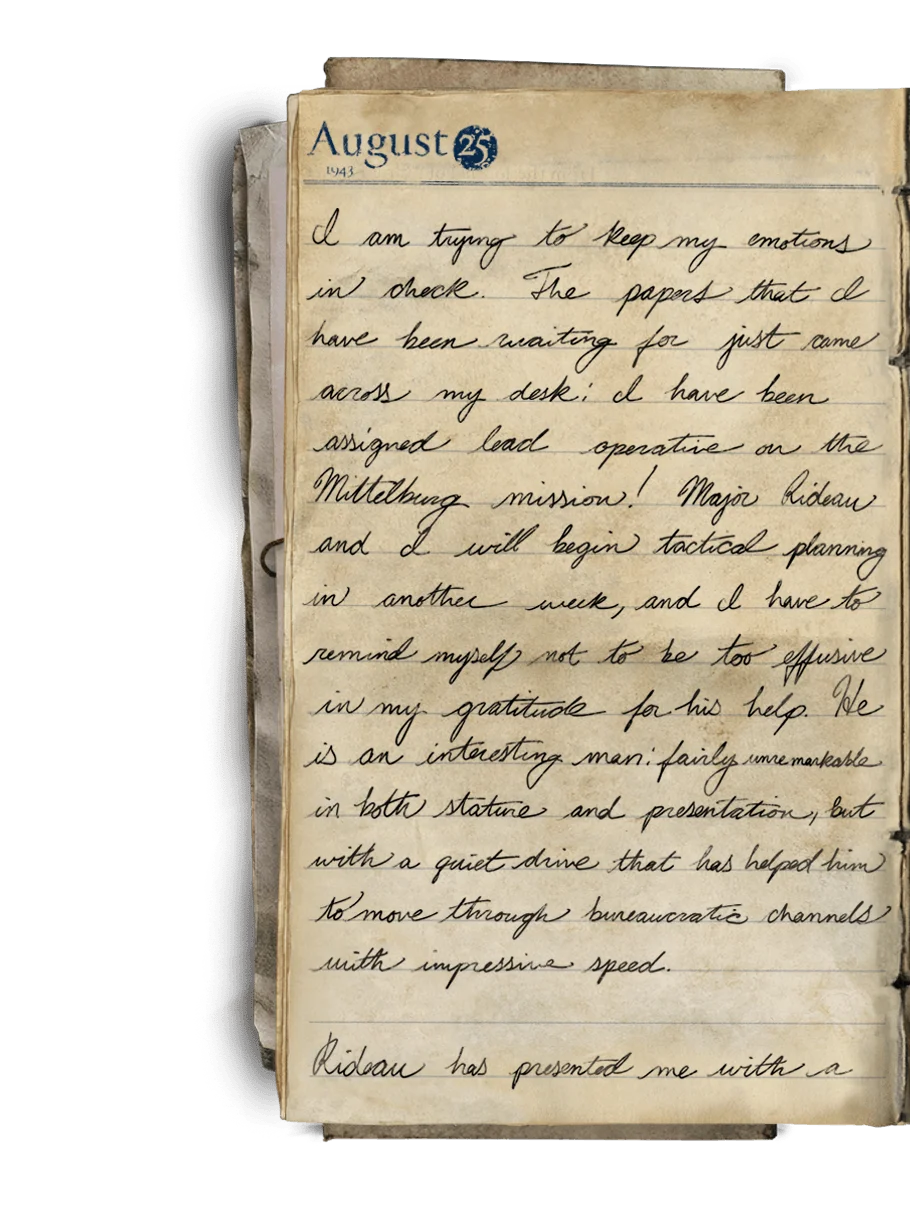 August 25
1943
I am trying to keep my emotions
in check. The papers that I
have been waiting for just came
across my desk: I have been
assigned lead operative on the
Mittelburg mission! Major Rideau
and I will begin tactical planning
in another week, and I have to
remind myself not to be too effusive
in my gratitude for his help. He
is an interesting man: fairly unremarkable
in both stature and presentation, but
with a quiet drive that has helped him
to move through bureaucratic channels
with impressive speed.
Rideau has presented me with a